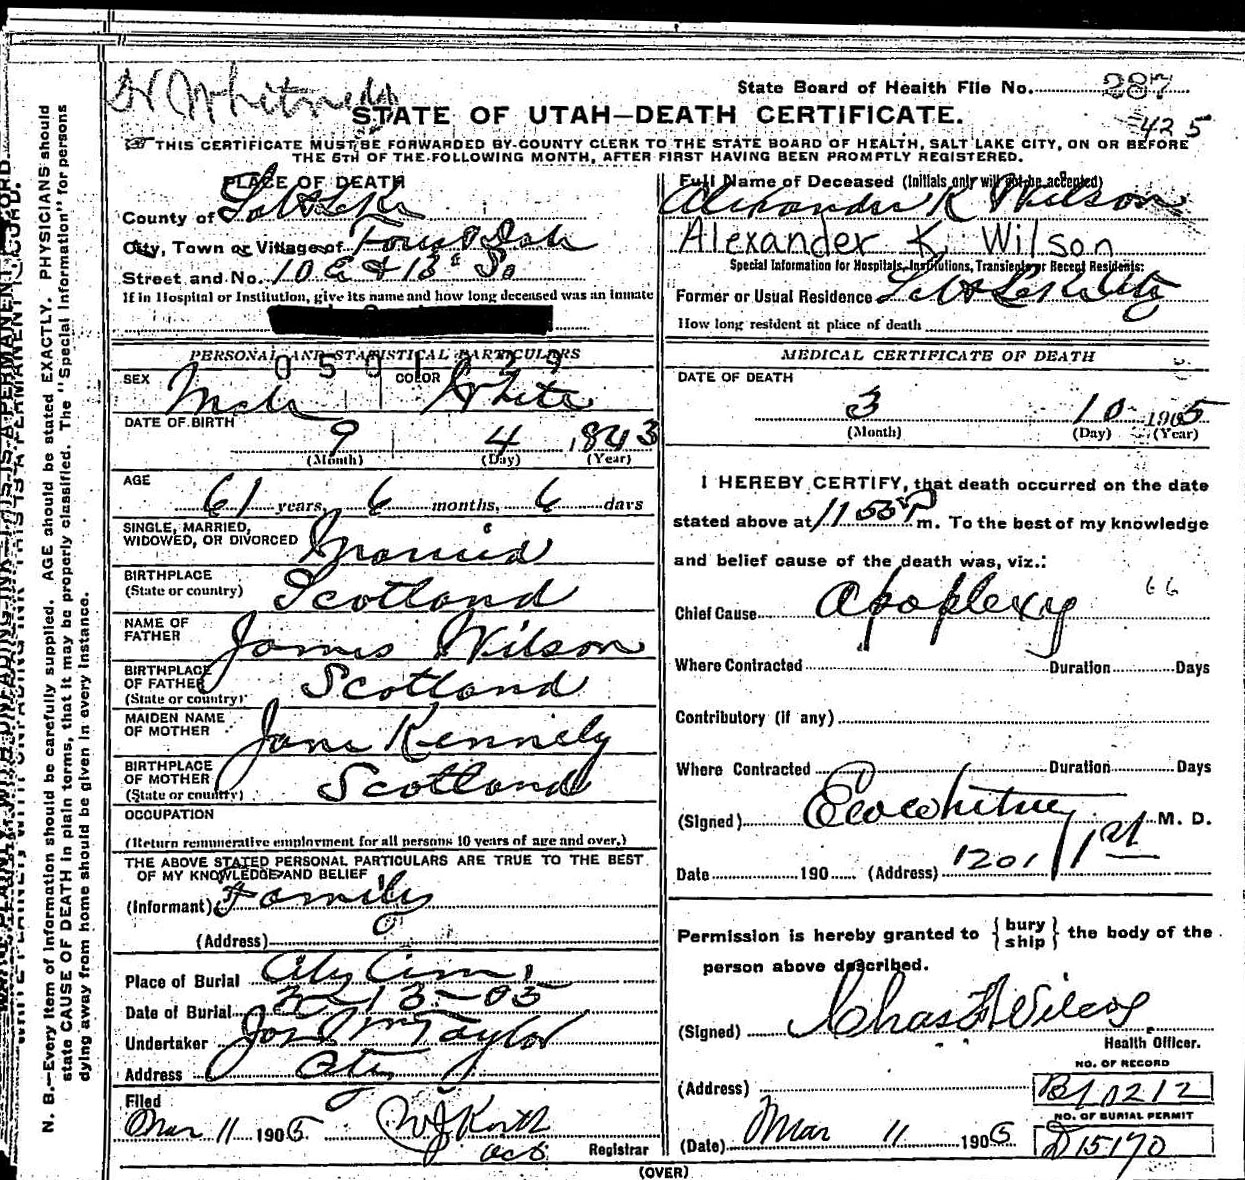 State Board of Health File No. 287
425
STATE OF UTAH—DEATH CERTIFICATE.
THIS CERTIFICATE MUST BE FORWARDED BY COUNTY CLERK TO THE STATE BOARD OF HEALTH, SALT LAKE CITY, ON OR BEFORE
THE 5TH OF THE FOLLOWING MONTH, AFTER FIRST HAVING BEEN PROMPTLY REGISTERED.
PLACE OF DEATH
County of Salt Lake
City, Town or Village of Forest Dale
Street and No. 10 E & 13 So
If in Hospital or Institution, give its name and how long deceased was an inmate
Full Name of Deceased (Initials only will not be accepted)
Alexander K Wilson
Alexander K. Wilson
Special Information for Hospitals, Institutions, Transients or Recent Residents:
Former or Usual Residence Salt Lake City
How long resident at place of death
PERSONAL AND STATISTICAL PARTICULARS
SEX Male COLOR White
DATE OF BIRTH
9 4 1843
(Month) (Day) (Year)
AGE
61 years, 6 months, 6 days
SINGLE, MARRIED,
WIDOWED, OR DIVORCED Married
BIRTHPLACE
(State or country) Scotland
NAME OF
FATHER James Wilson
BIRTHPLACE
OF FATHER
(State or country) Scotland
MAIDEN NAME
OF MOTHER Jane Kennely
BIRTHPLACE
OF MOTHER
(State or country) Scotland
OCCUPATION
(Return remunerative employment for all persons 10 years of age and over.)
THE ABOVE STATED PERSONAL PARTICULARS ARE TRUE TO THE BEST
OF MY KNOWLEDGE AND BELIEF
(Informant) Family
(Address)
Place of Burial City Cem.
Date of Burial 3-13-05
Undertaker Jos Wm Taylor
Address City
Filed
Mar 11 1905
Registrar
MEDICAL CERTIFICATE OF DEATH
DATE OF DEATH
3 10 1905
(Month) (Day) (Year)
I HEREBY CERTIFY, that death occurred on the date
stated above at 11 55 P m. To the best of my knowledge
and belief cause of the death was, viz.:
66
Chief Cause Apoplexy
Where Contracted Duration Days
Contributory (if any)
Where Contracted Duration Days
(Signed) Whitney M. D.
Date 190 (Address) 1201 1st
Permission is hereby granted to { bury ship } the body of the
person above described.
(Signed) Chas F Wilcox
Health Officer.
NO. OF RECORD
(Address) B10212
NO. OF BURIAL PERMIT
(Date) Mar 11 1905 D15170
(OVER)
N. B.—Every item of information should be carefully supplied. AGE should be stated EXACTLY. PHYSICIANS should
state CAUSE OF DEATH in plain terms, that it may be properly classified. The "Special Information" for persons
dying away from home should be given in every instance.